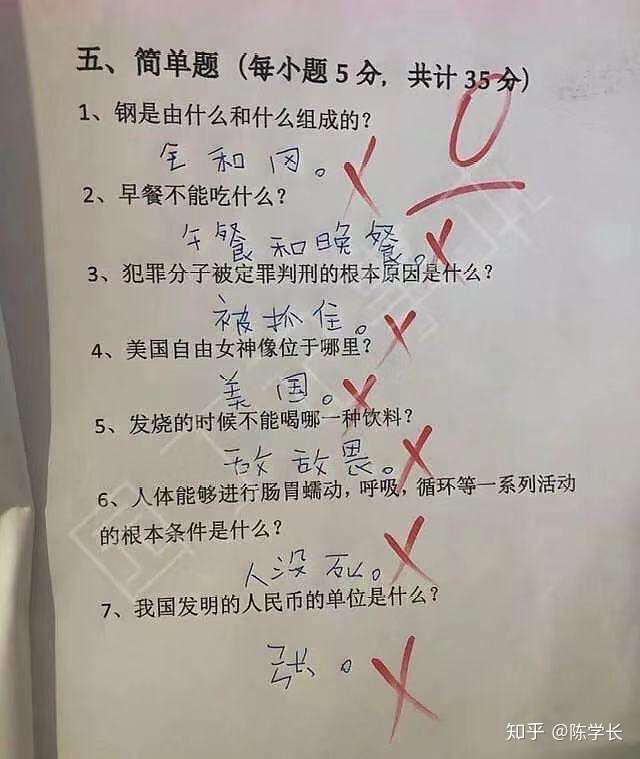 五、简单题（每小题5分，共计35分）
0
1、钢是由什么和什么组成的？
全和冈。
2、早餐不能吃什么？
午餐和晚餐。
3、犯罪分子被定罪判刑的根本原因是什么？
被抓住。
4、美国自由女神像位于哪里？
美国。
5、发烧的时候不能喝哪一种饮料？
敌敌畏。
6、人体能够进行肠胃蠕动，呼吸，循环等一系列活动
的根本条件是什么？
人没死。
7、我国发明的人民币的单位是什么？
张。
知乎 @陈学长